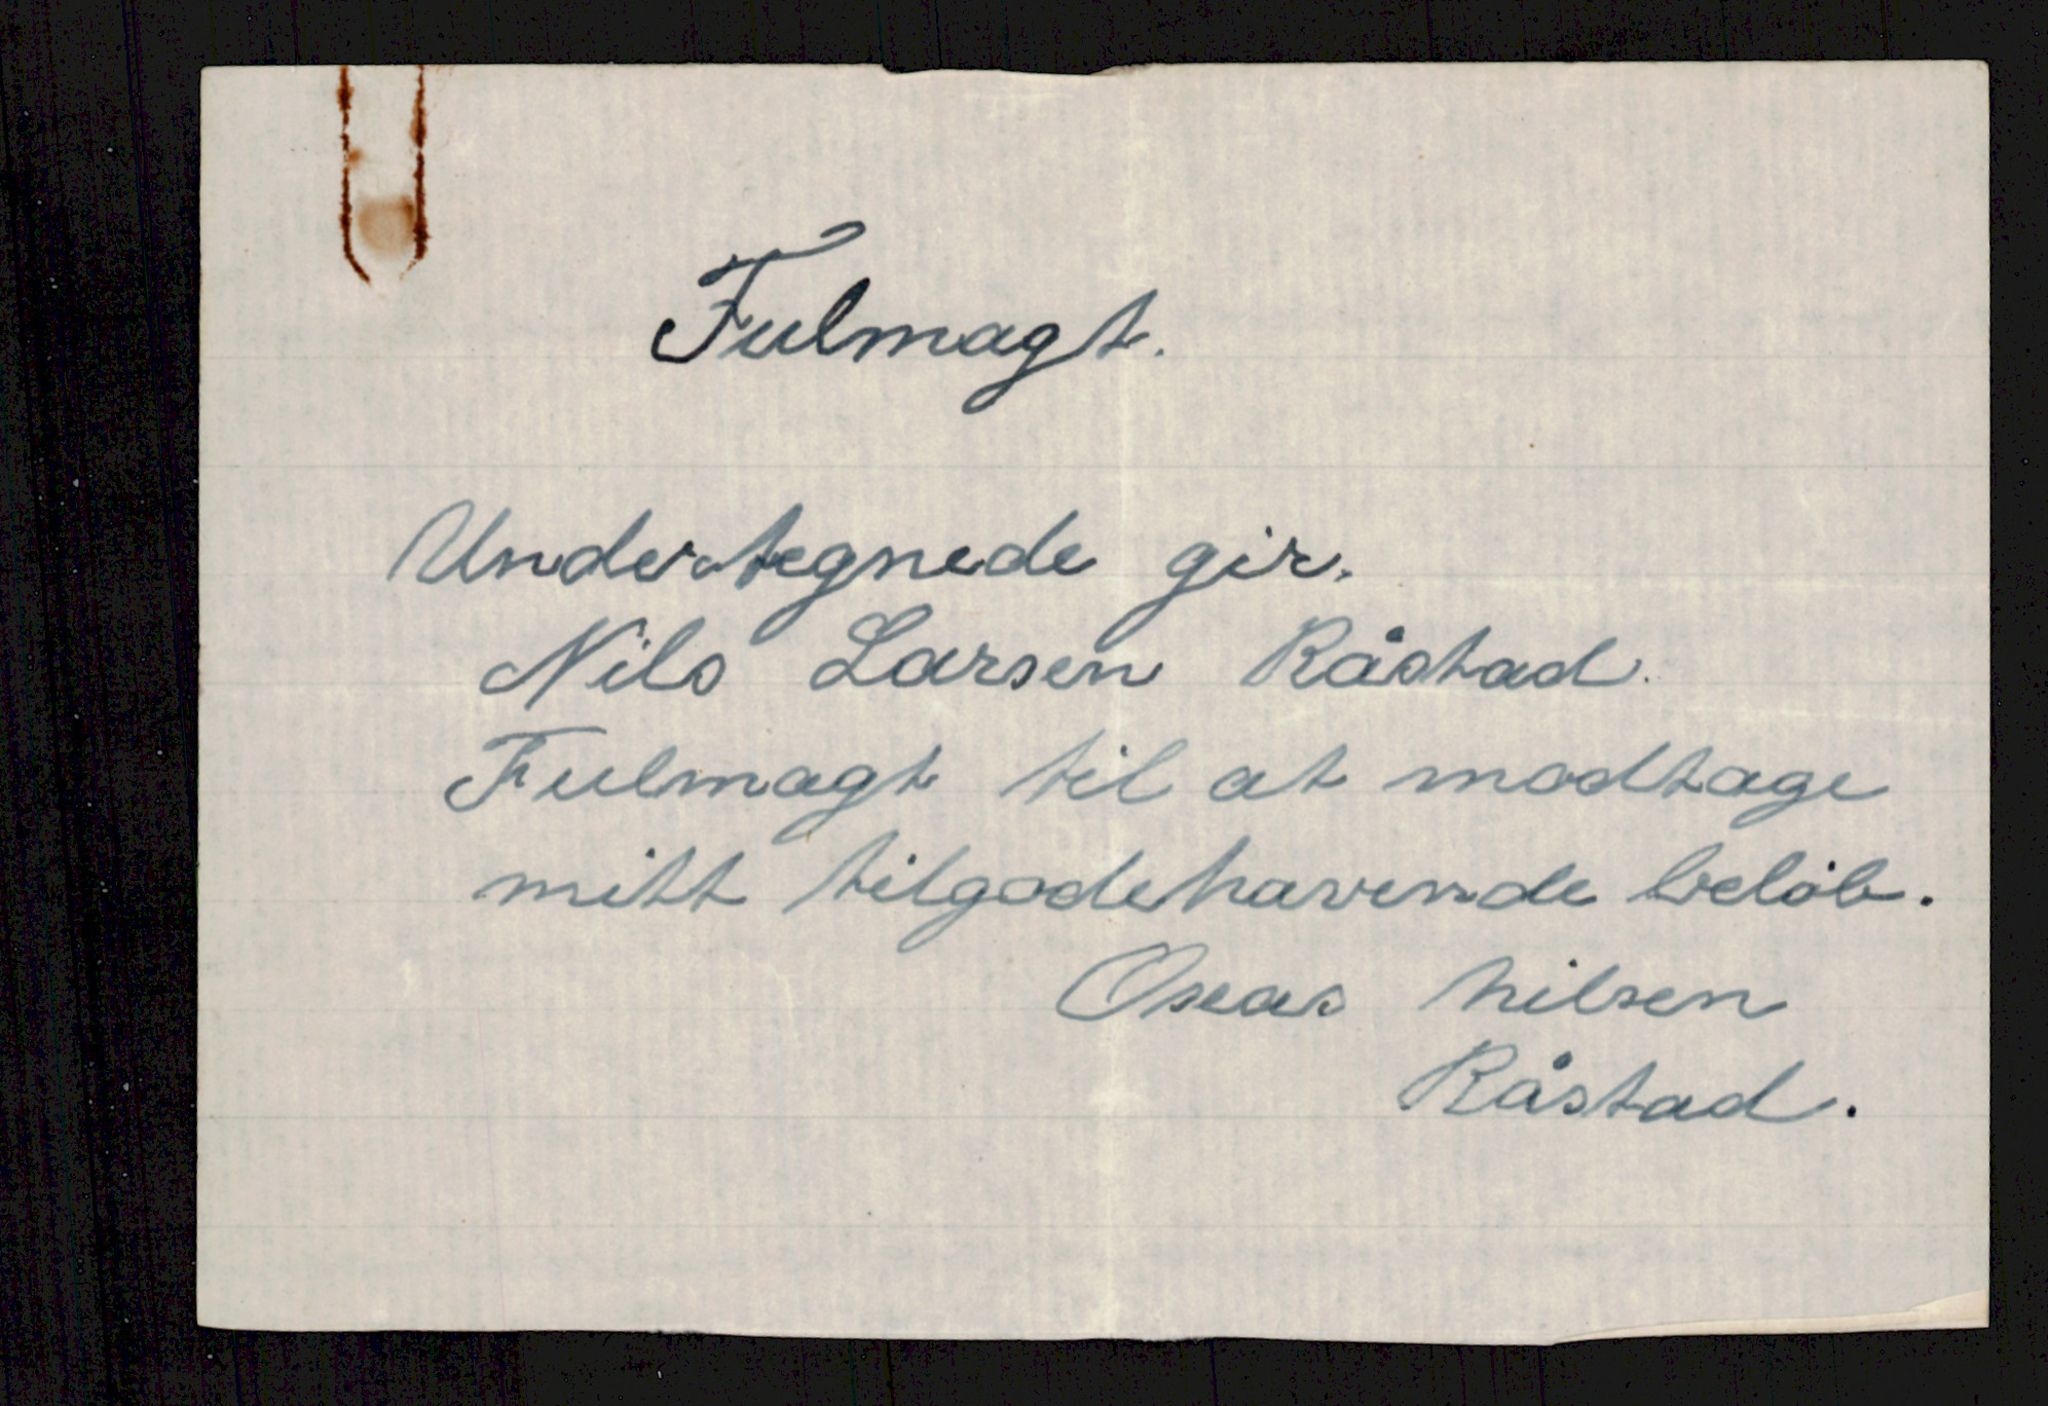 Fulmagt.
Undertegnede gir.
Nils Larsen Råstad.
Fulmagt til at modtage
mitt tilgodehavende beløb.
Oscar Nilsen
Råstad.